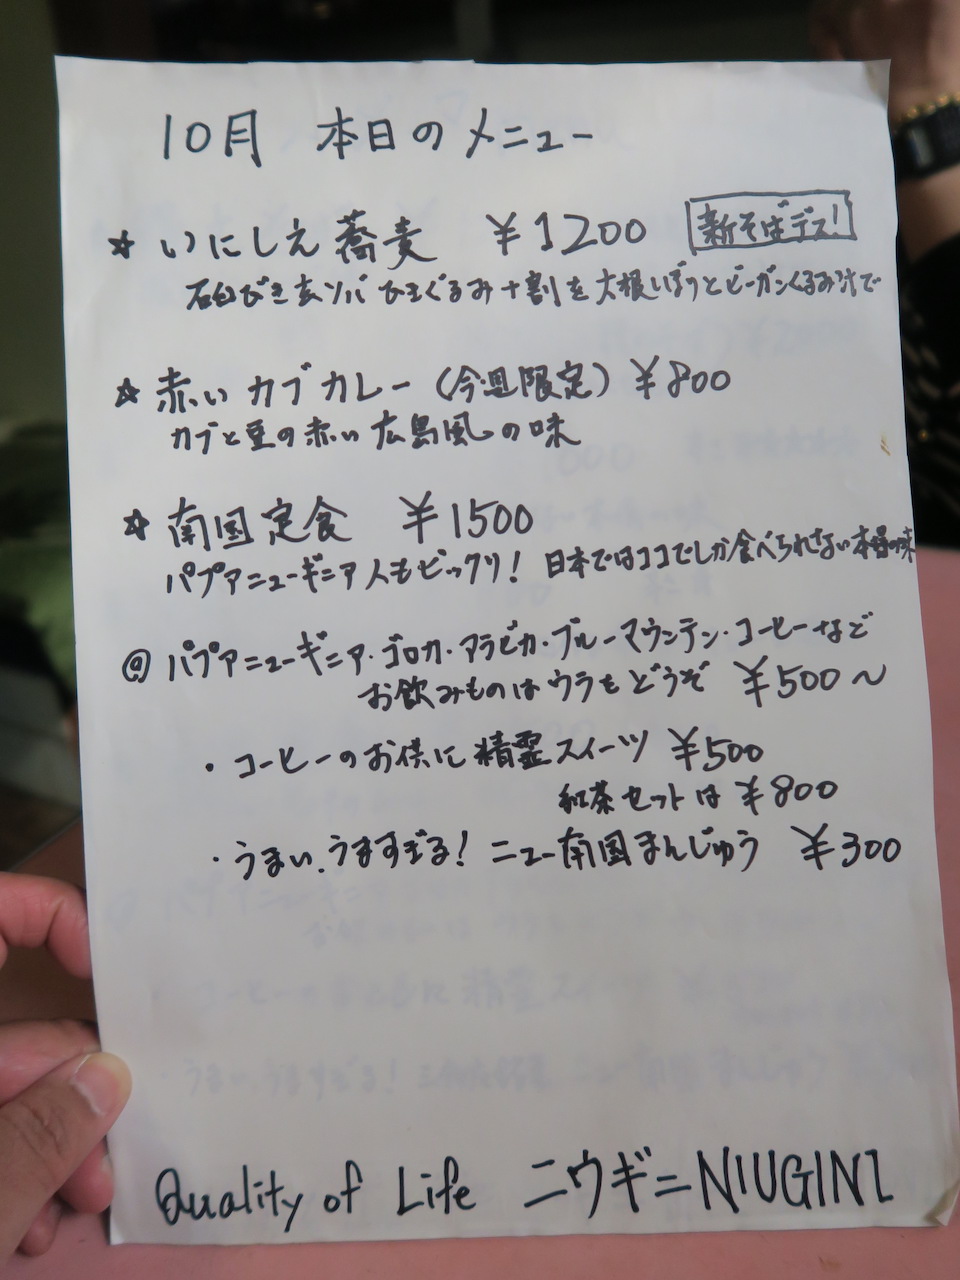 10月 本日のメニュー
☆ いにしえ蕎麦 ¥1200 新そばデス!
石臼びき玄ソバ ひきぐるみ十割を大根しぼりとビーガンくるみ汁で
☆ 赤いカブカレー(今週限定) ¥800
カブと豆の赤い広島風の味
☆ 南国定食 ¥1500
パプアニューギニア人もビックリ! 日本ではココでしか食べられない本場の味
@ パプアニューギニア・ゴロカ・アラビカ・ブルーマウンテン・コーヒーなど
お飲みものはウラもどうぞ ¥500〜
・コーヒーのお供に精霊スイーツ ¥500
紅茶セットは ¥800
・うまい、うますぎる! ニュー南国まんじゅう ¥300
Quality of Life ニウギニ NIUGINI